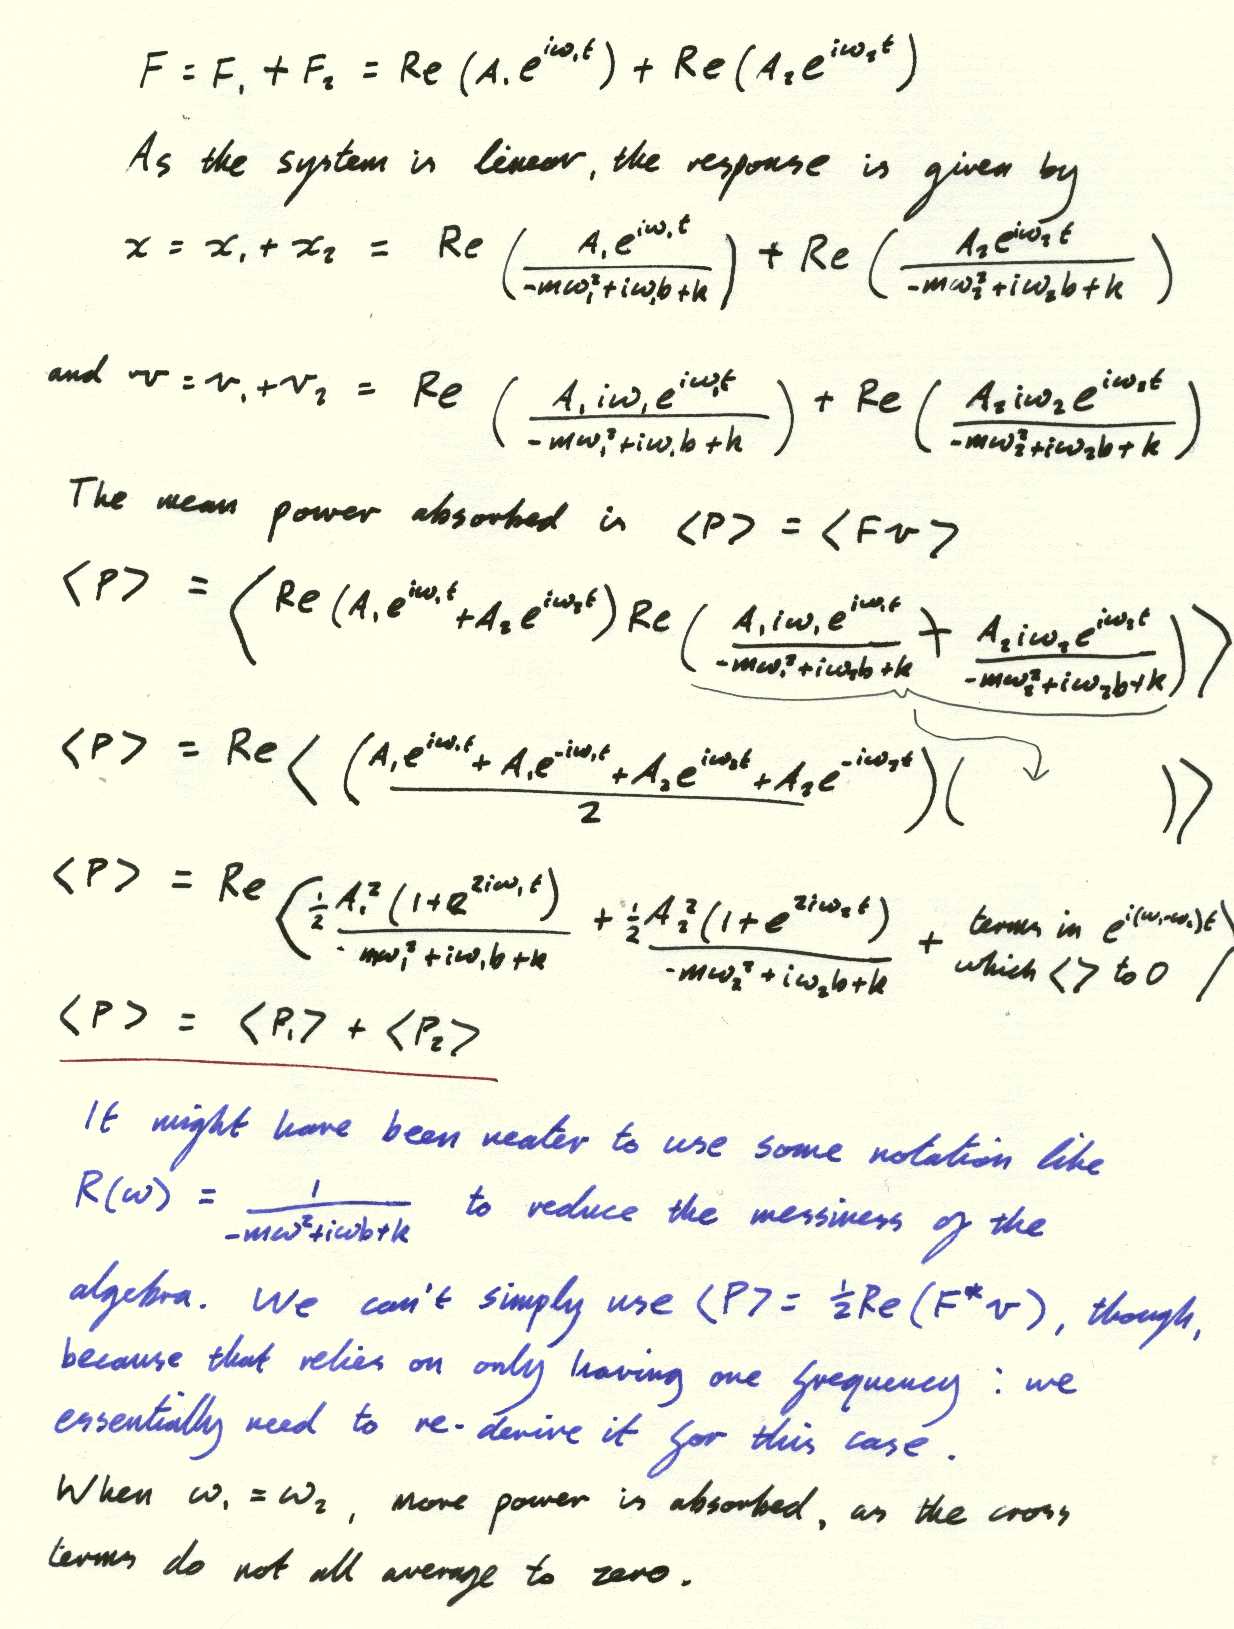 F = F₁ + F₂ = Re (A₁e^{iω₁t}) + Re (A₂e^{iω₂t})
As the system is linear, the response is given by
x = x₁ + x₂ = Re (A₁e^{iω₁t} / (-mω₁²+iω₁b+k)) + Re (A₂e^{iω₂t} / (-mω₂²+iω₂b+k))
and v = v₁+v₂ = Re (A₁iω₁e^{iω₁t} / (-mω₁²+iω₁b+k)) + Re (A₂iω₂e^{iω₂t} / (-mω₂²+iω₂b+k))
The mean power absorbed is <P> = <Fv>
<P> = <Re (A₁e^{iω₁t}+A₂e^{iω₂t}) Re (A₁iω₁e^{iω₁t} / (-mω₁²+iω₂b+k) + A₂iω₂e^{iω₂t} / (-mω₂²+iω₂b+k))>
<P> = Re <((A₁e^{iω₁t}+A₁e^{-iω₁t}+A₂e^{iω₂t}+A₂e^{-iω₂t}) / 2) ( )>
<P> = Re <½A₁²(1+e^{2iω₁t}) / (-mω₁²+iω₁b+k) + ½A₂²(1+e^{2iω₂t}) / (-mω₂²+iω₂b+k) + terms in e^{i(ω₁-ω₂)t} which <> to 0>
<P> = <P₁> + <P₂>
It might have been neater to use some notation like
R(ω) = 1 / (-mω²+iωb+k) to reduce the messiness of the
algebra. We can't simply use <P> = ½Re(F*v), though,
because that relies on only having one frequency : we
essentially need to re-derive it for this case.
When ω₁ = ω₂, more power is absorbed, as the cross
terms do not all average to zero.